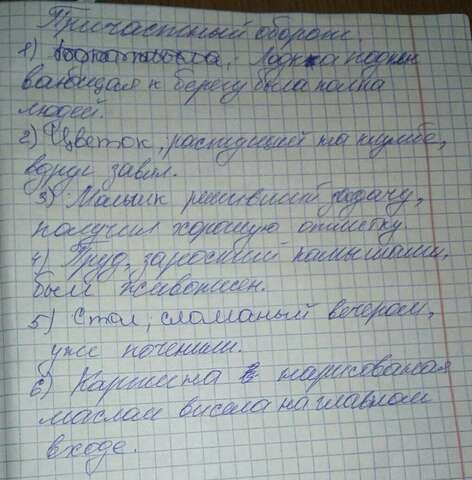 Причастный оборот.
1) Лодка подплы
вающая к берегу была полна
людей.
2) Цветок, растущий на клумбе,
вдруг завял.
3) Малыш решивший задачу,
получил хорошую отметку.
4) Пруд, заросший камышами,
был живописен.
5) Стол, сломаный вечером,
уже починили.
6) Картина нарисованая
маслом висела на главном
входе.